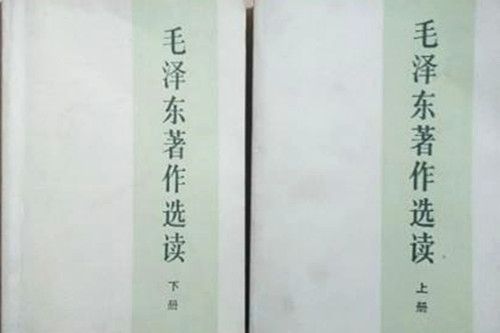 毛泽东著作选读
下册
毛泽东著作选读
上册